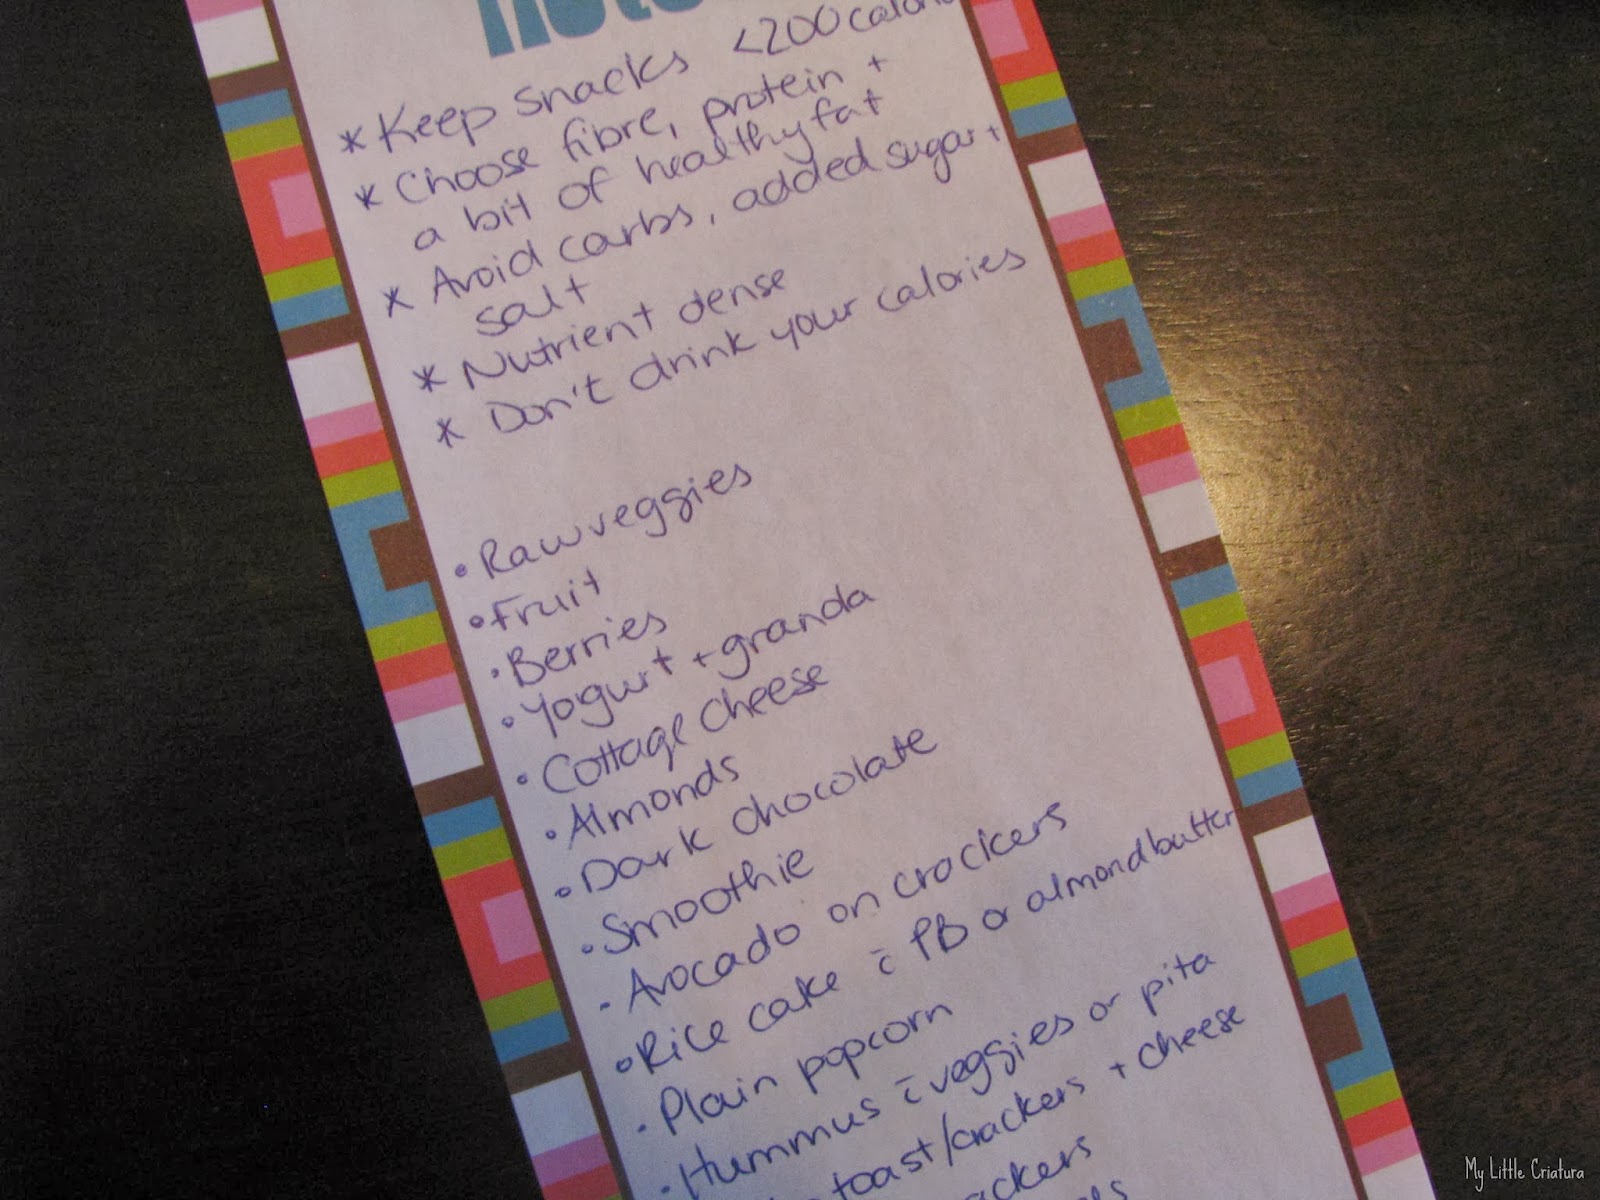 * Keep snacks <200 calorie
* Choose fibre, protein +
a bit of healthy fat
* Avoid carbs, added sugar +
salt
* Nutrient dense
* Don't drink your calories
• Raw veggies
• Fruit
• Berries
• Yogurt + granola
• Cottage cheese
• Almonds
• Dark chocolate
• Smoothie
• Avocado on crackers
• Rice cake c̄ PB or almond butter
• Plain popcorn
• Hummus c̄ veggies or pita
toast/crackers + cheese
ackers
My Little Criatura